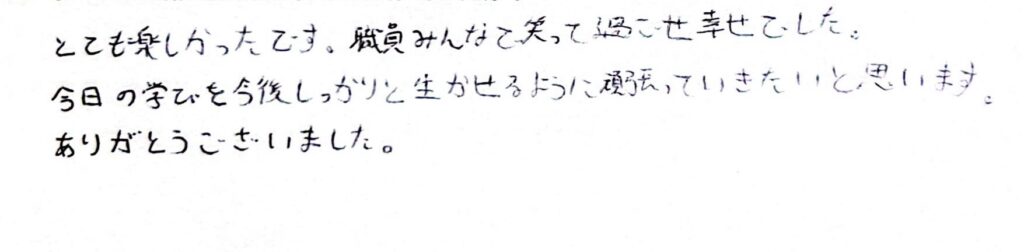 とても楽しかったです。職員みんなで笑って過ごせ幸せでした。
今日の学びを今後しっかりと生かせるように頑張っていきたいと思います。
ありがとうございました。